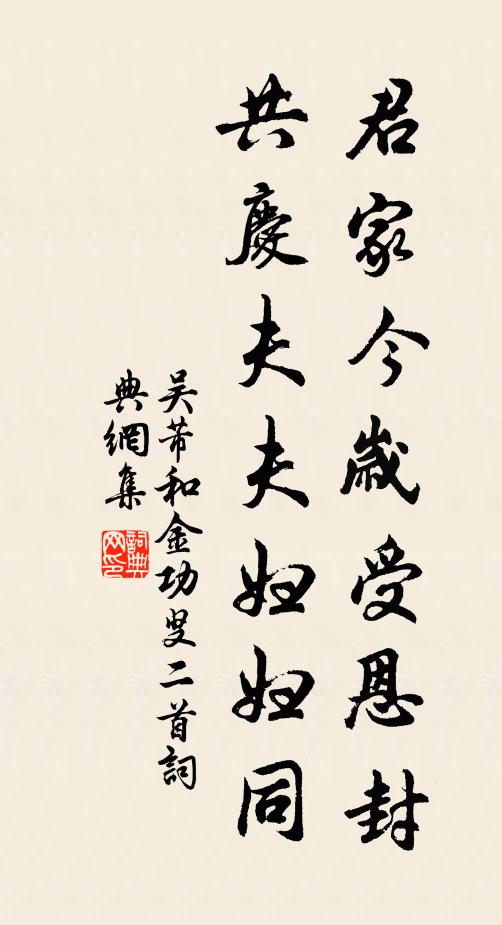 君家今歲受恩封
共慶夫夫婦婦同
吴芾和金功叟二首詞
典網集
詞典网印